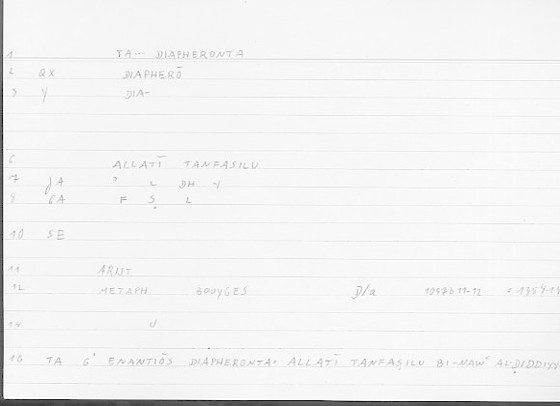 1 TA... DIAPHERONTA
2 QX DIAPHERŌ
3 Y DIA-
6 ALLATĪ TANFAṢILU
7 JA ʾ L DH Y
8 GA F Ṣ L
10 SE
11 ARIST
12 METAPH BOUYGES D/a 1057b11-12 = 1354.14
14 V
16 TA Gʾ ENANTIŌS DIAPHERONTA: ALLATĪ TANFAṢILU BI-NAWʿ AL-ḌIDDIYY